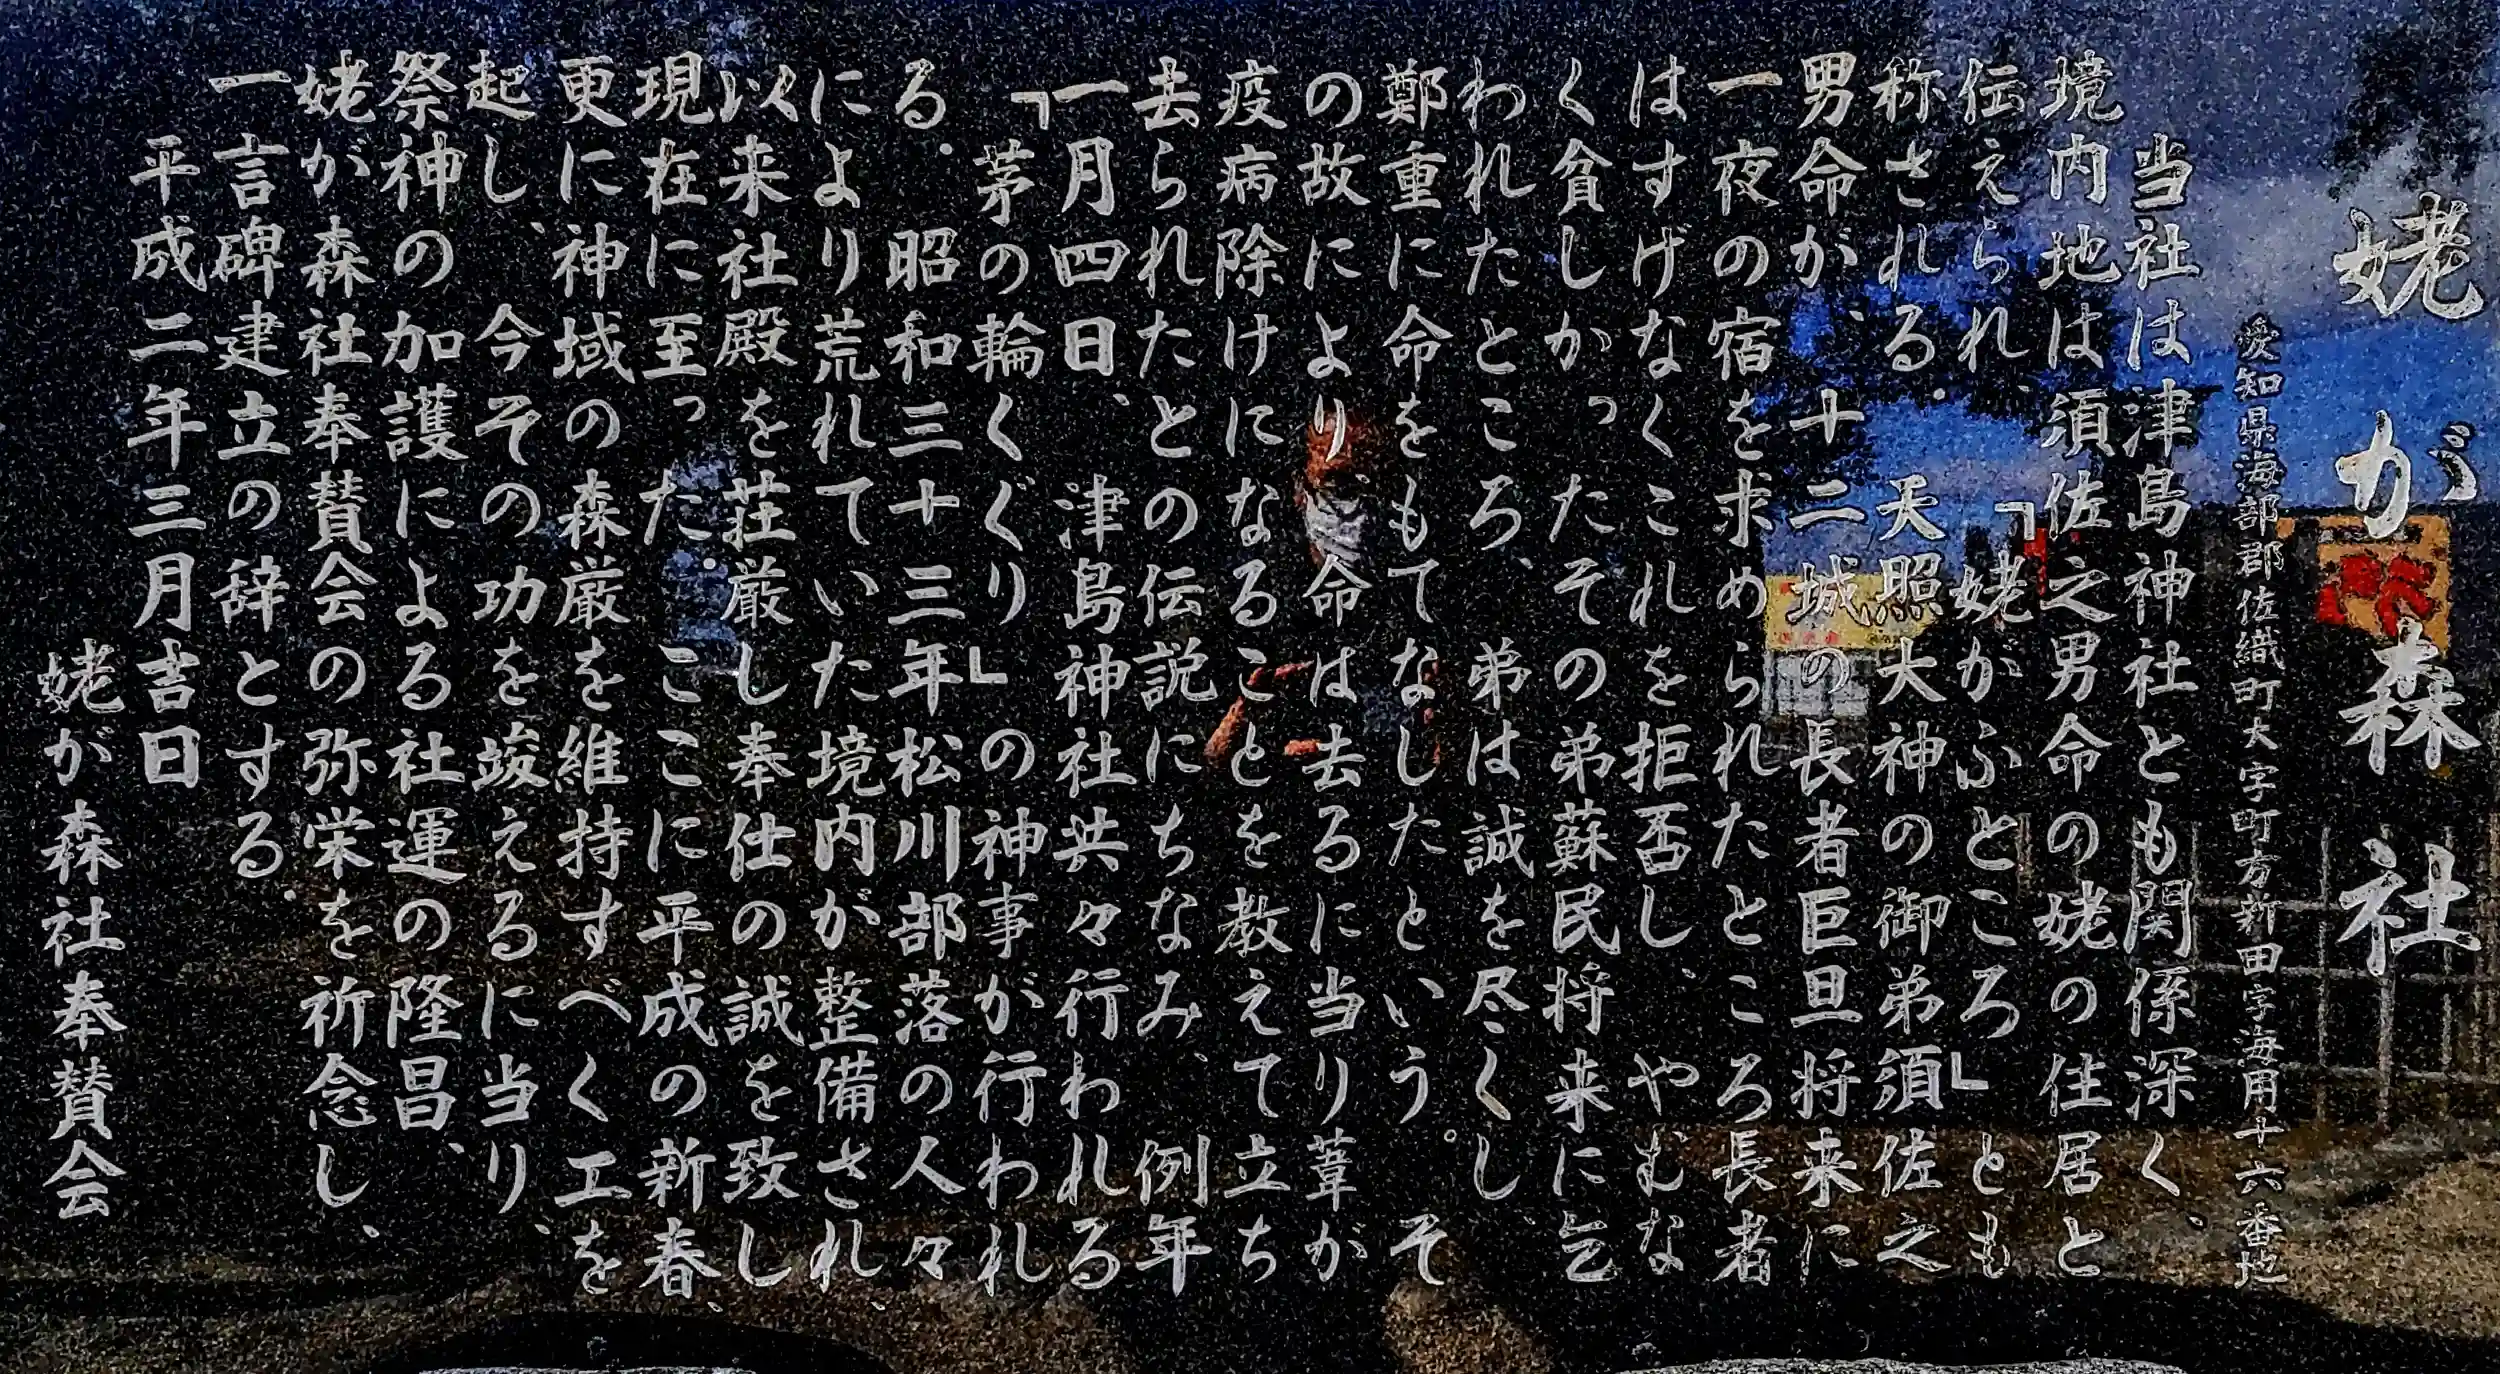 姥が森社
愛知県海部郡佐織町大字町方新田字海用十六番地
当社は津島神社とも関係深く、
境内地は須佐之男命の姥の住居と
伝えられ、「姥がふところ」とも
称される。天照大神の御弟須佐之
男命が、十二城の長者巨旦将来に
一夜の宿を求められたところ長者
はすげなくこれを拒否し、やむな
く貧しかったその弟蘇民将来に乞
われたところ、弟は誠を尽くし、
鄭重に命をもてなしたという。そ
の故により、命は去るに当り葦が
疫病除けになることを教えて立ち
去られたとの伝説にちなみ、例年
一月四日、津島神社共々行われる
「茅の輪くぐり」の神事が行われ
る。昭和三十三年松川部落の人々
により荒れていた境内が整備され、
以来社殿を荘厳し奉仕の誠を致し
現在に至った。ここに平成の新春、
更に神域の森厳を維持すべく工を
起し、今その功を竣えるに当り、
祭神の加護による社運の隆昌、
姥が森社奉賛会の弥栄を祈念し、
一言碑建立の辞とする。
平成二年三月吉日
姥が森社奉賛会